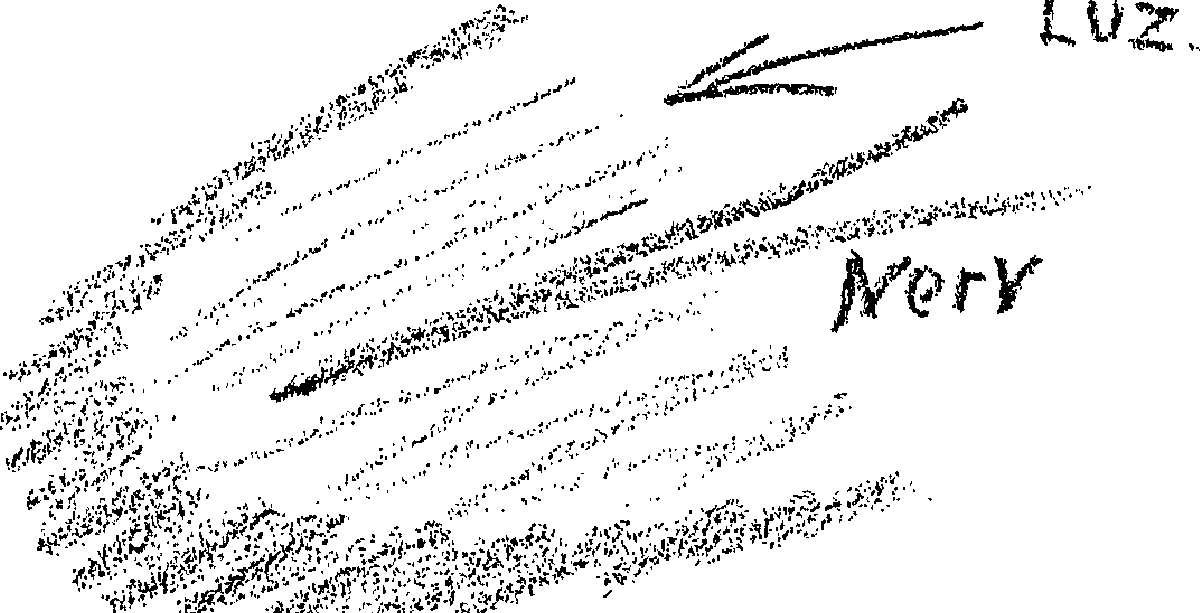 Luz.
Nerv